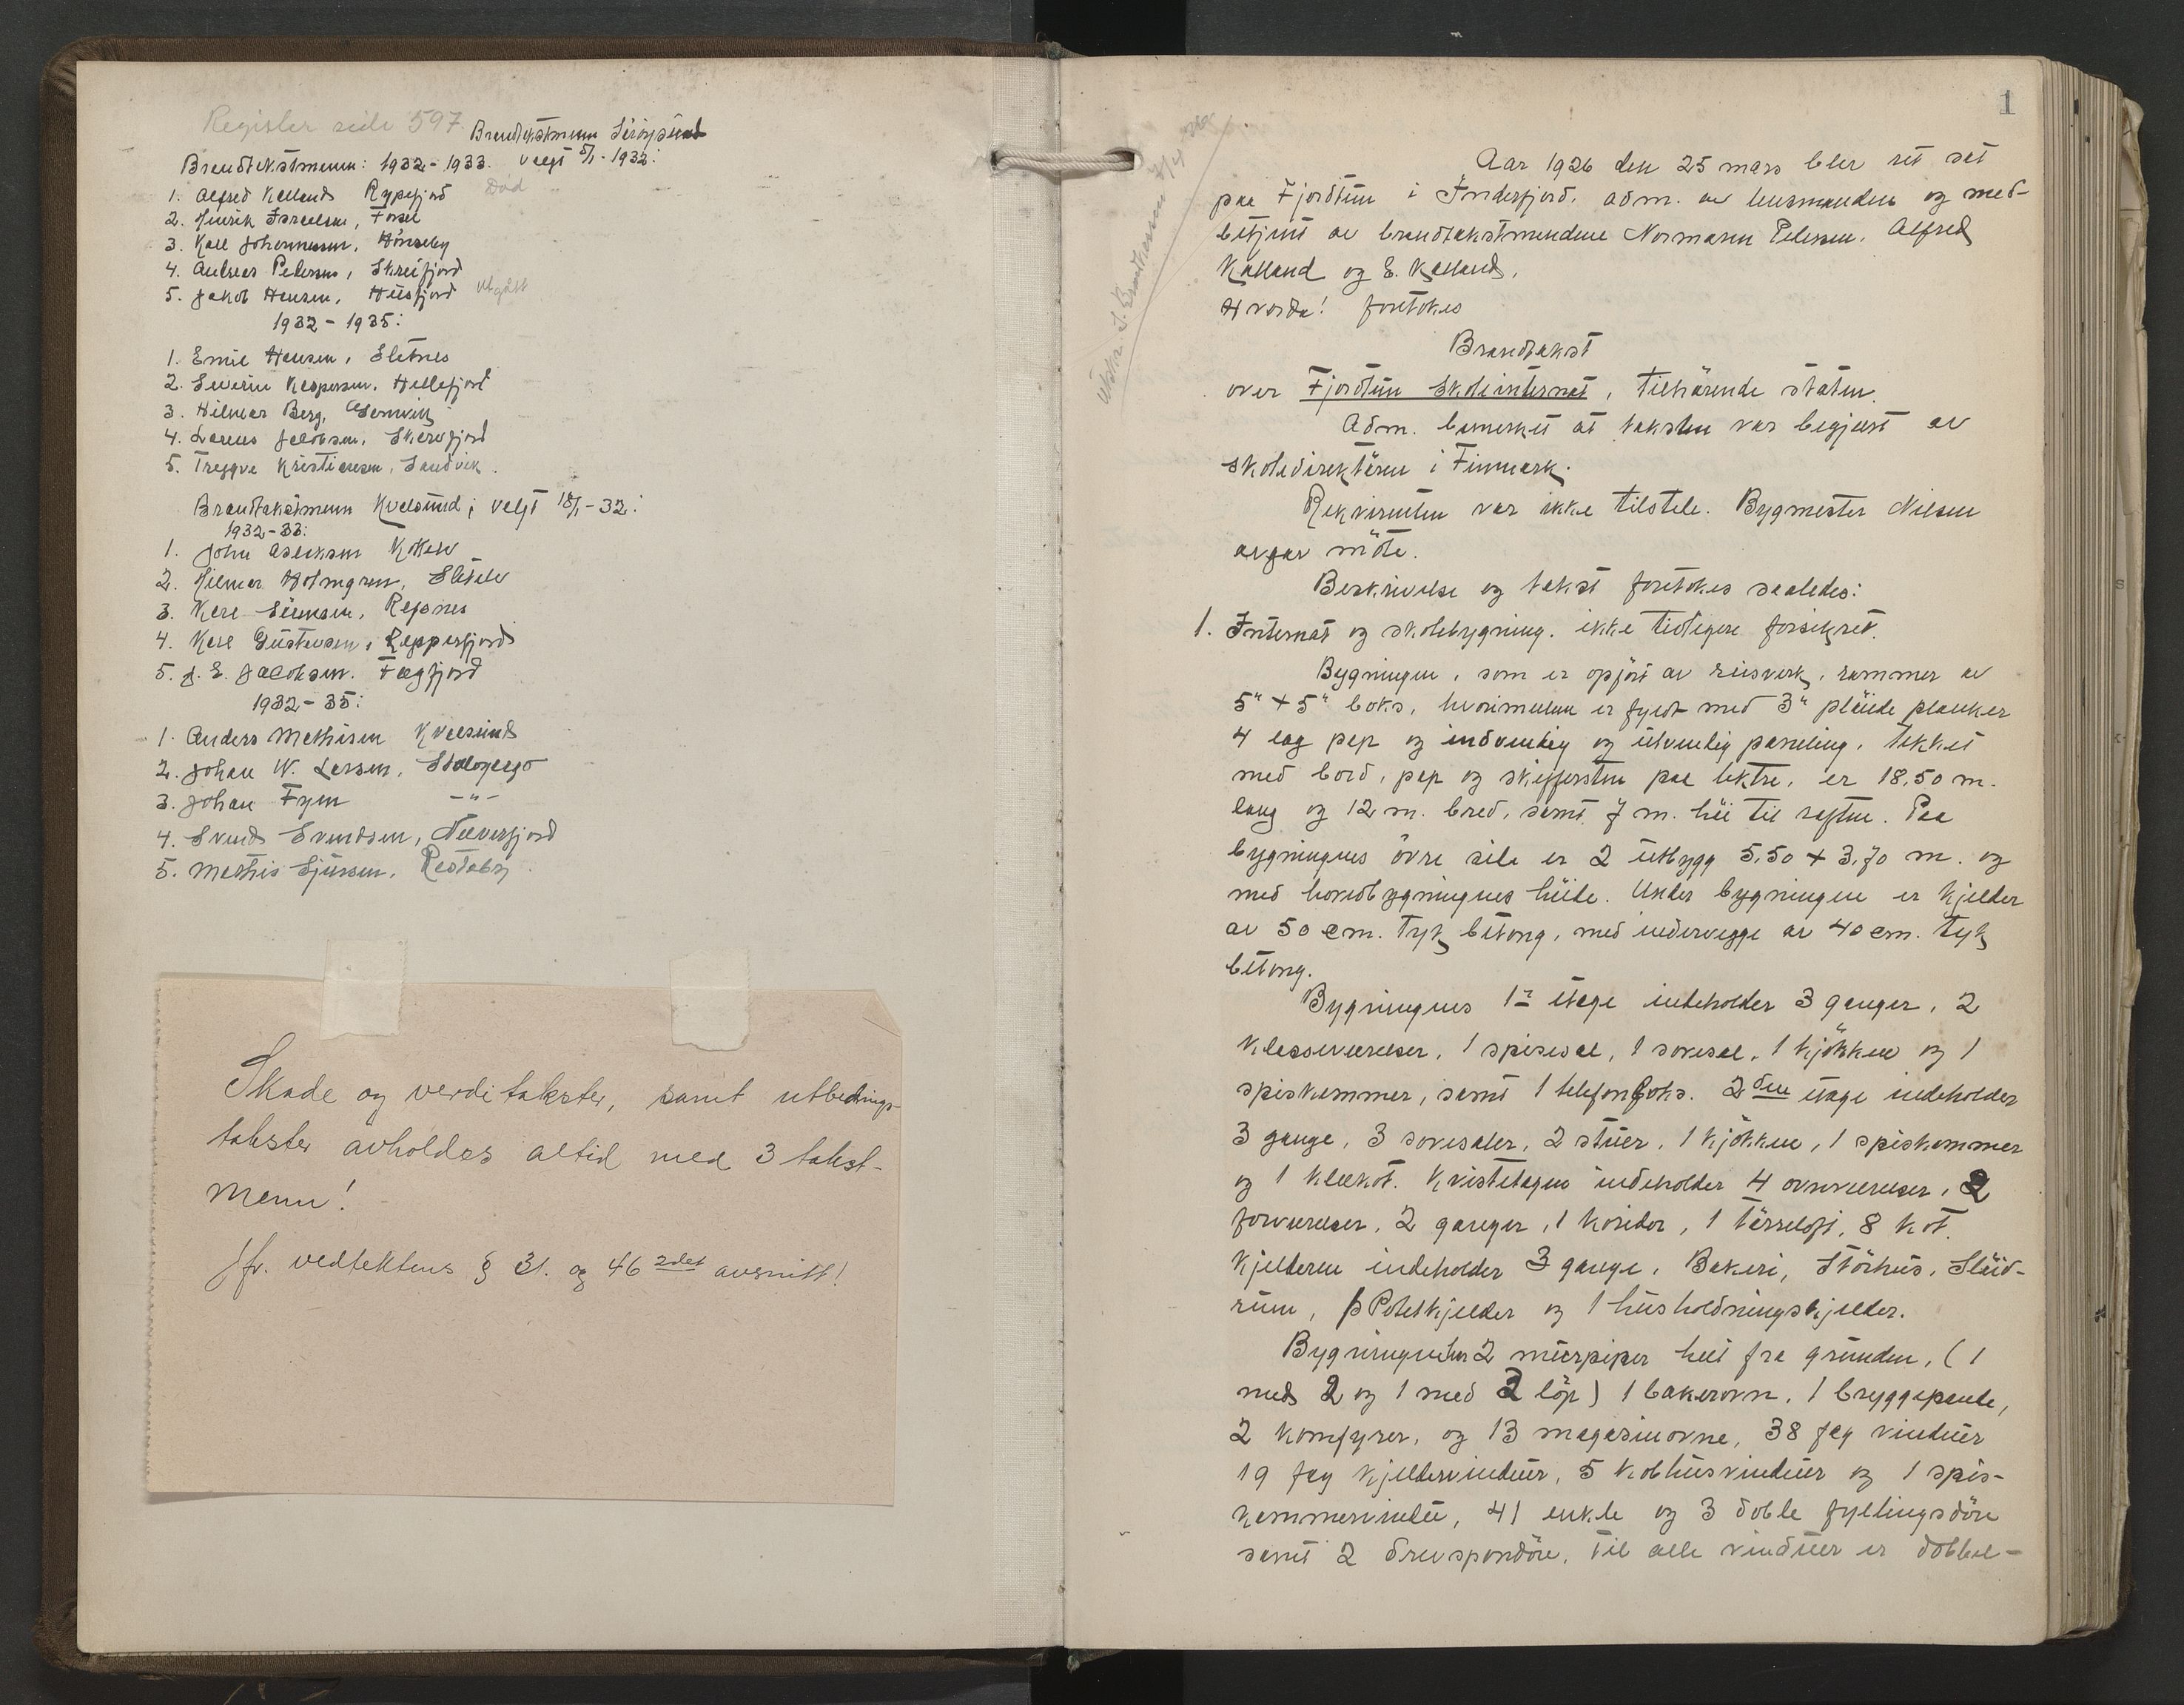 Register side 597
Brandtakstmenn Sørøysund
Brandtakstmenn: 1932-1933. valgt 5/1-1932:
1. Alfred Kalland Rypefjord Död
2. Henrik Israelsen, Forsøl
3. Karl Johannessen, Hönseby
4. Andreas Pedersen, Skreifjord
5. Jakob Hansen, Hüsfjord utgått
1932-1935:
1. Emil Hansen, Sletnes
2. Severin Kaspersen, Hellefjord
3. Hilmar Berg,
4. Laurus Jakobsen, Skarvfjord
5. Tryggve Kristiansen, Sandvik.
Brandtakstmenn Kvalsund; valgt 18/1-32:
1932-33:
1. John Aslaksen Kokelv
2. Hilmar Holmgren,
3. Karl Simonsen, Repsnes
4. Karl Güstavsen, Repparfjord
5. J. E. Jakobsen. Fægfjord
1932-35:
1. Anders Mathisen Kvalsund
2. Johan W. Larsen, Stalogargo
3. Johan Fyen -"-
4. Svend Svendsen, Neverfjord
5. Mathis Sjursen.
Skade og verditakster, samt utbedrings-
takster avholdes altid med 3 takst-
menn!
Jfr. vedtektens § 31. og 46 2det avsnitt!
1
Utskr. 7/4
Aar 1926 den 25 mars blev ret sat
paa Fjordtün i Inderfjord, adm. av lensmanden og med-
betjent av brandtakstmendene Normann Pedersen, Alfred
Kalland og E. Kalland.
Hvorda! foretokes
Brandtakst
over Fjordtün skoleinternat, tilhörende staten.
Adm. bemerket at taksten var begjært av
skoledirektören i Finmark.
Rekvirenten var ikke tilstede. Bygmester Nilsen
avgav möte.
Beskrivelse og takst foretokes saaledes:
1. Internat og skolebygning. ikke tidligere forsikret.
Bygningen, som er opfört av reisverk, rammer av
5" + 5" boks, hvorimellem er fyldt med 3" pløide planker
4 lag pap og indvendig og ütvendig paneling, tækket
med bord, pap og skifferstein paa lekter, er 18,50 m.
lang og 12 m. bred, samt 7 m. höi til raftene. Paa
bygningens övre side er 2 ütbygg 5,50 + 3,70 m. og
med hovedbygningens höide. Under bygningen er kjelder
av 50 cm. tyk betong, med indervegge av 40 cm. tyk
betong.
Bygningens 1ste etage indeholder 3 ganger, 2
klasseværelser, 1 spisesal, 1 sovesal, 1 kjökken og 1
spiskammer, samt 1 telefonboks. 2den etage indeholder
3 gange, 3 sovesaler, 2 stüer, 1 kjökken, 1 spiskammer
og 1 klækot. Kvistetagen indeholder 4 ovnsværelser, 2
forværelser, 2 ganger, 1 koridor, 1 törreloft, 8 kot.
Kjelderen indeholder 3 gange, Bakeri, Störhüs, Slöid-
rüm, Potetkjelder og 1 hüsholdningskjelder.
Bygningen har 2 mürpiper helt fra gründen, (1
med 2 og 1 med 3 löp) 1 bakerovn, 1 bryggepande,
2 komfyrer, og 13 magasinovne, 38 fag vindüer
19 fag kjeldervindüer, 5 kobhüsvindüer og 1 spis-
kammervindü, 41 enkle og 3 doble fyllingsdöre
samt 2 döre. Til alle vindüer er dobbel-